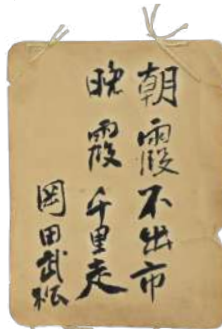 朝霞不出市
晩霞千里走
岡田武松